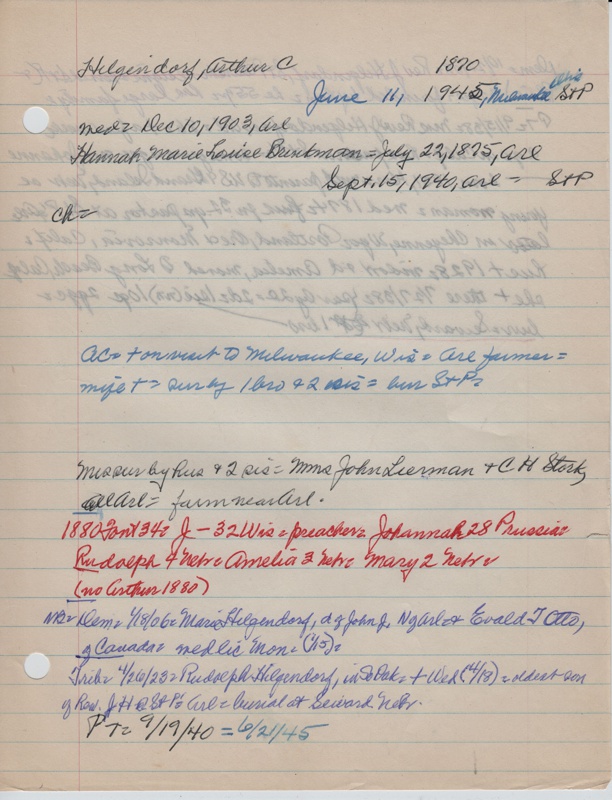 Hilgendorf, Arthur C 1870
June 11, 1945, Milwaukee Wis StP
med= Dec 10, 1903, Arl
Hannah Marie Louise Brinkman = July 22, 1875, Arl
Sept. 15, 1940, Arl = StP
Ch=
AC= + on visit to Milwaukee, Wis = Arl farmer =
wife + = sur by 1 bro & 2 sis = bur StP=
Mrs sur by hus & 2 sis = Mmes John Lierman & C H Stork,
all Arl = farm near Arl.
1880 Font 34= J - 32 Wis = preacher = Johannah 28 Prussia=
Rudolph 4 Nebr = Amelia 3 Nebr = Mary 2 Nebr =
(no Arthur 1880)
NB= Dem= 1/18/06= Marie Hilgendorf, d of John J, N of Arl & Evald T Otto,
of Canada = med lic Mon = (1/15)=
Trib= 4/26/23= Rudolph Hilgendorf, in So Dak = + Wed (4/18) = oldest son
of Rev. J H @ St P= Arl = burial at Seward Nebr.
PT= 9/19/40 = 6/21/45